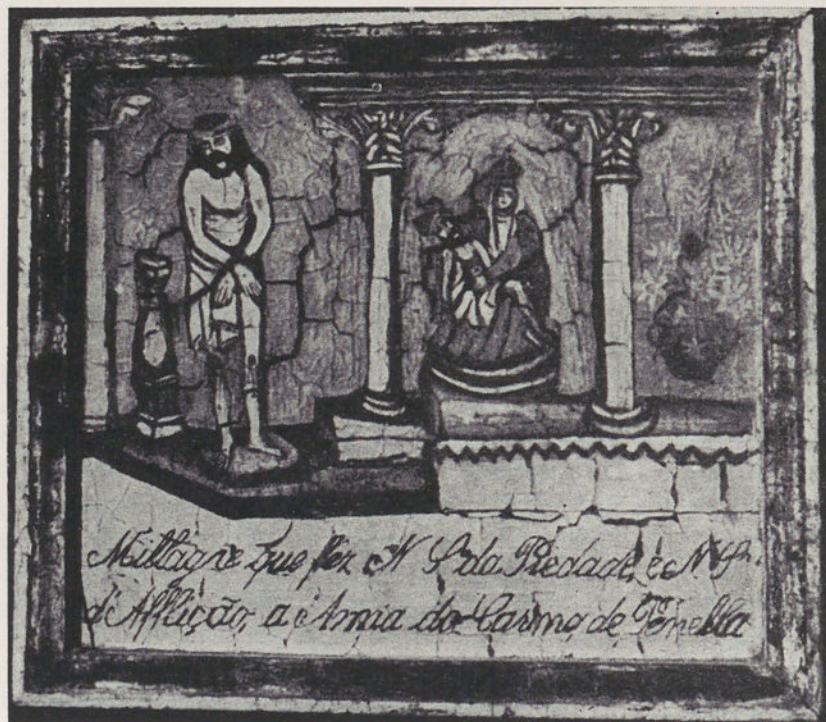 Millagre que fez N S da Piedade, e N Sr.
d'Afflição, a Anna do Carmo, de Penella